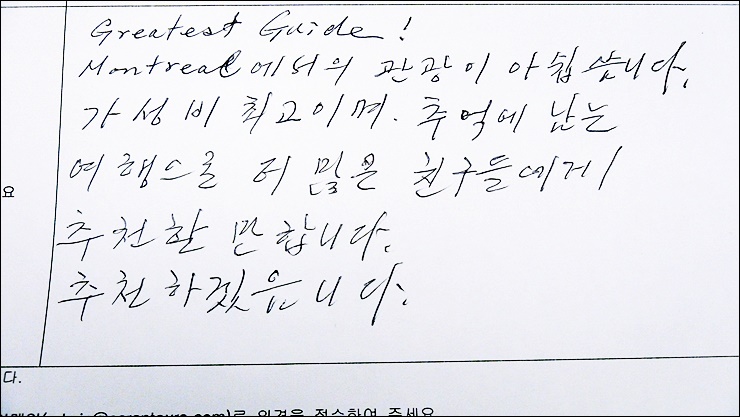 Greatest Guide!
Montreal에서의 관광이 아쉽습니다.
가성비 최고이며. 추억에 남는
여행으로 더 많은 친구들에게
추천할 만합니다.
추천하겠읍니다.
요
다.
로 의견을 접수하여 주세요